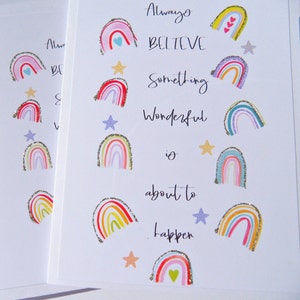 Always
BELIEVE
Something
Wonderful
is
about to
happen
Always
BE
So
W